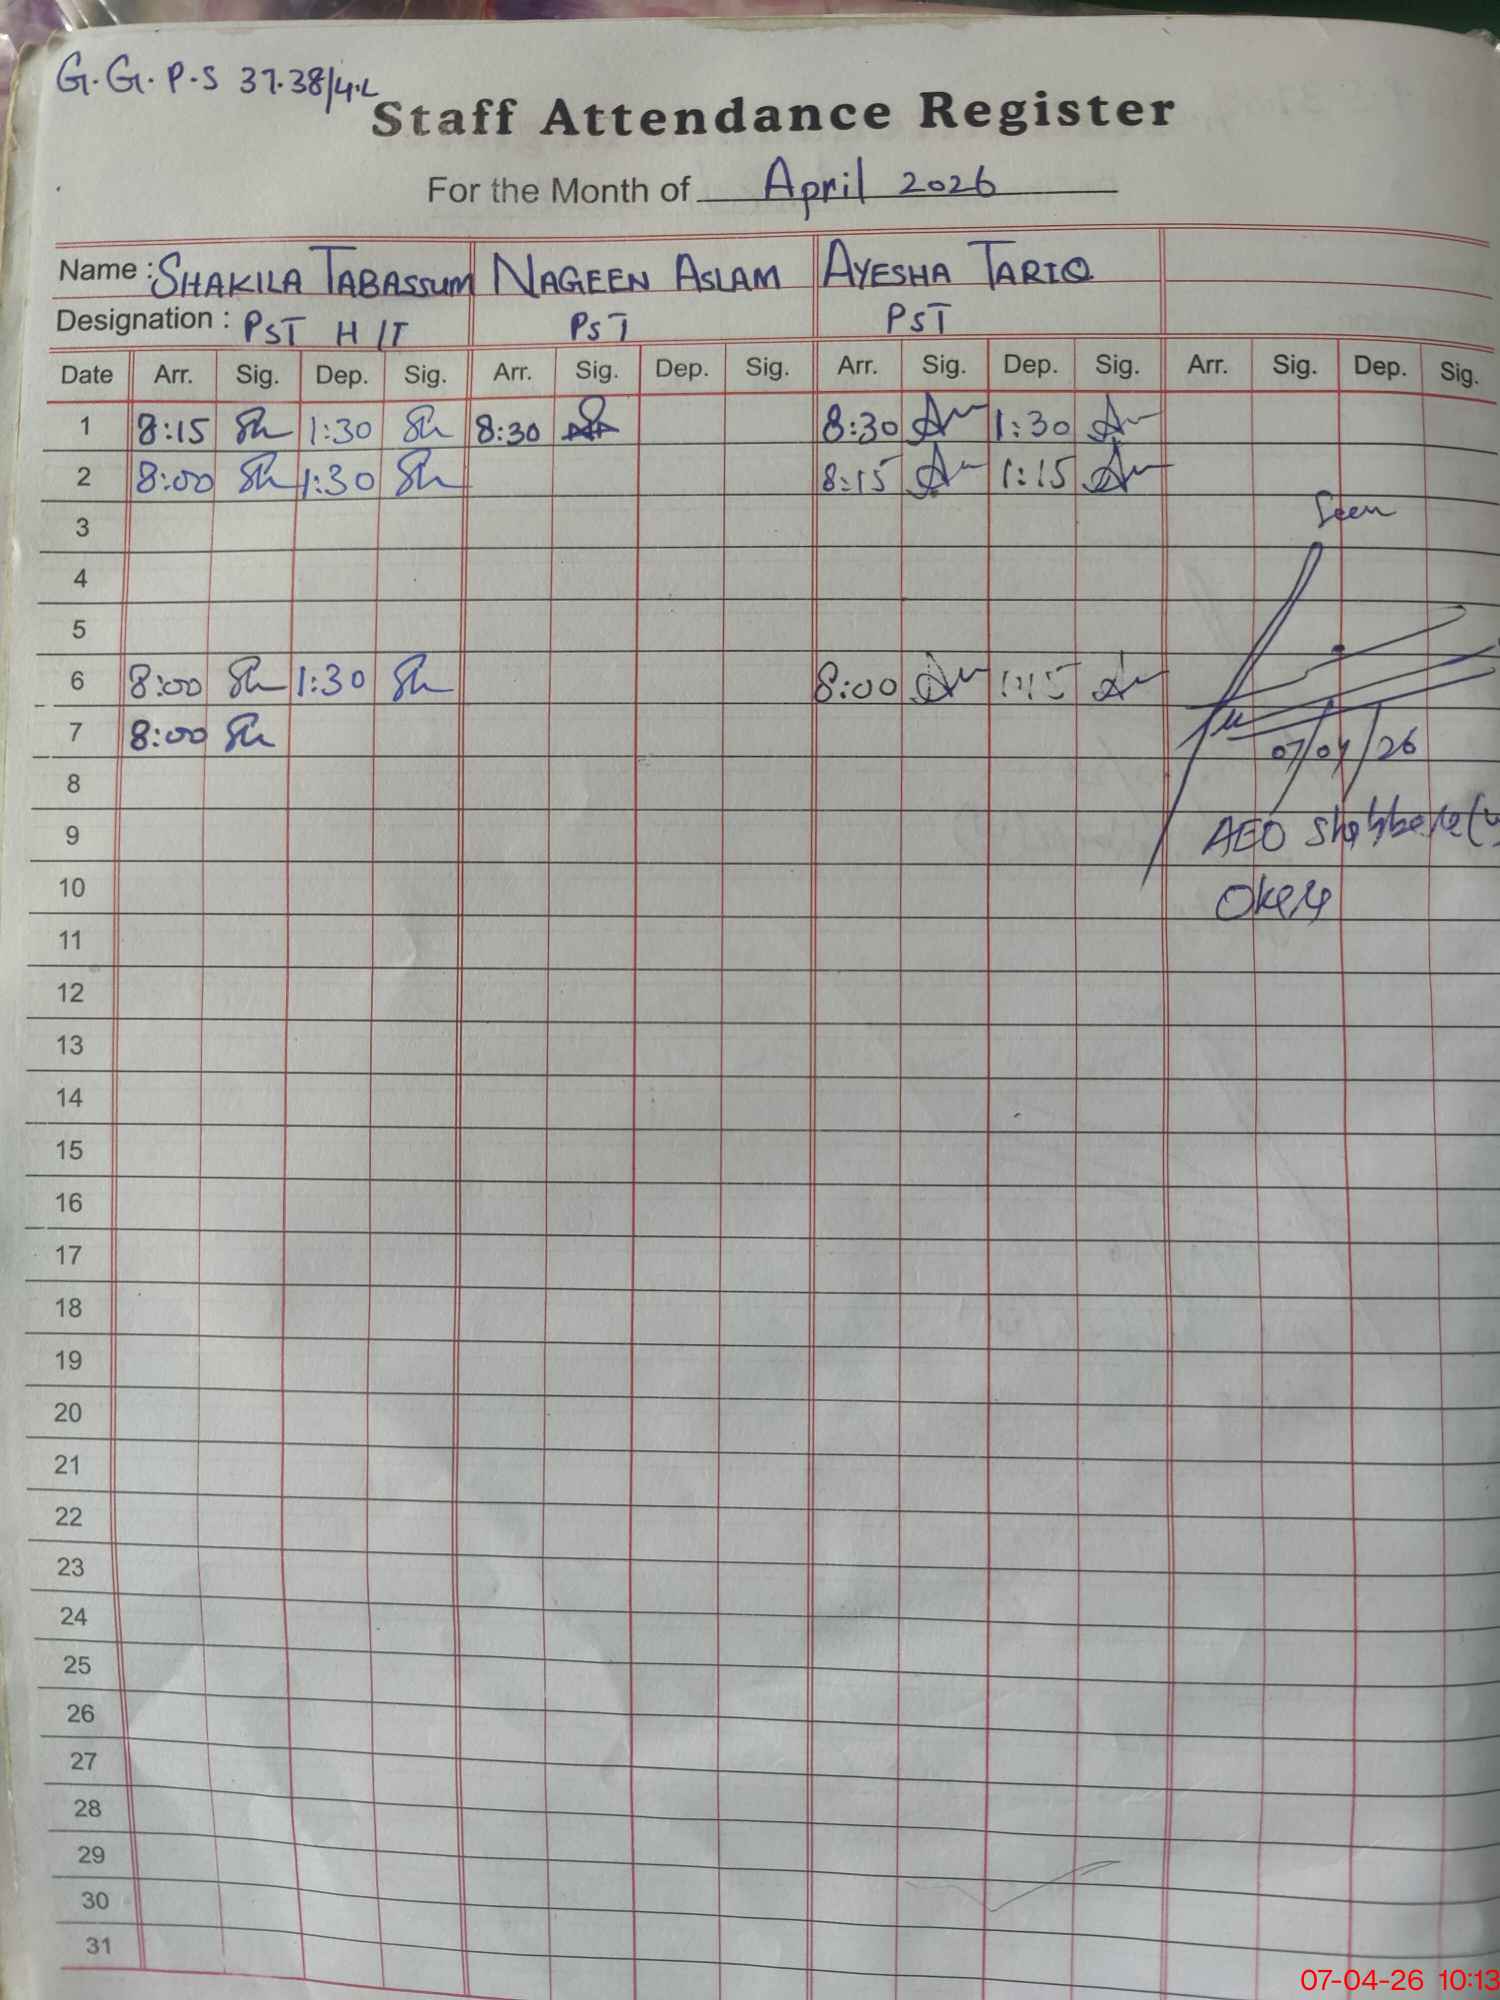 G.G.P.S 37.38/4.L
Staff Attendance Register
For the Month of April 2026
Name : SHAKILA TABASSUM NAGEEN ASLAM AYESHA TARIQ
Designation : PST H/T PST PST
Date Arr. Sig. Dep. Sig. Arr. Sig. Dep. Sig. Arr. Sig. Dep. Sig. Arr. Sig. Dep. Sig.
1 8:15 Sh 1:30 Sh 8:30 8:30 1:30
2 8:00 Sh 1:30 Sh 8:15 1:15
3 Seen
4
5
6 8:00 Sh 1:30 Sh 8:00 1:15
7 8:00 Sh 07/04/26
8
9 AEO
10
11
12
13
14
15
16
17
18
19
20
21
22
23
24
25
26
27
28
29
30
31
07-04-26 10:13